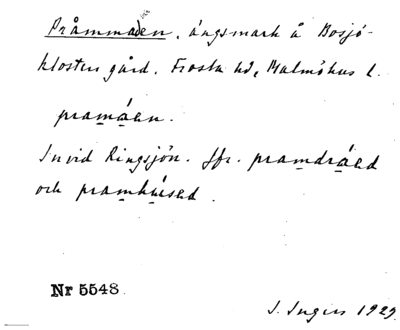 Pråmmaden, ängsmark å Bosjö-
klosters gård. Frosta hd, Malmöhus l.
pramáen.
Invid Ringsjön. Jfr. pramdráed
och pramhúsed.
Nr 5548
J. Ingers 1929